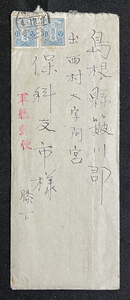 島根縣簸川郡
出西村大字阿宮
保科文市様
膝下
軍事郵便